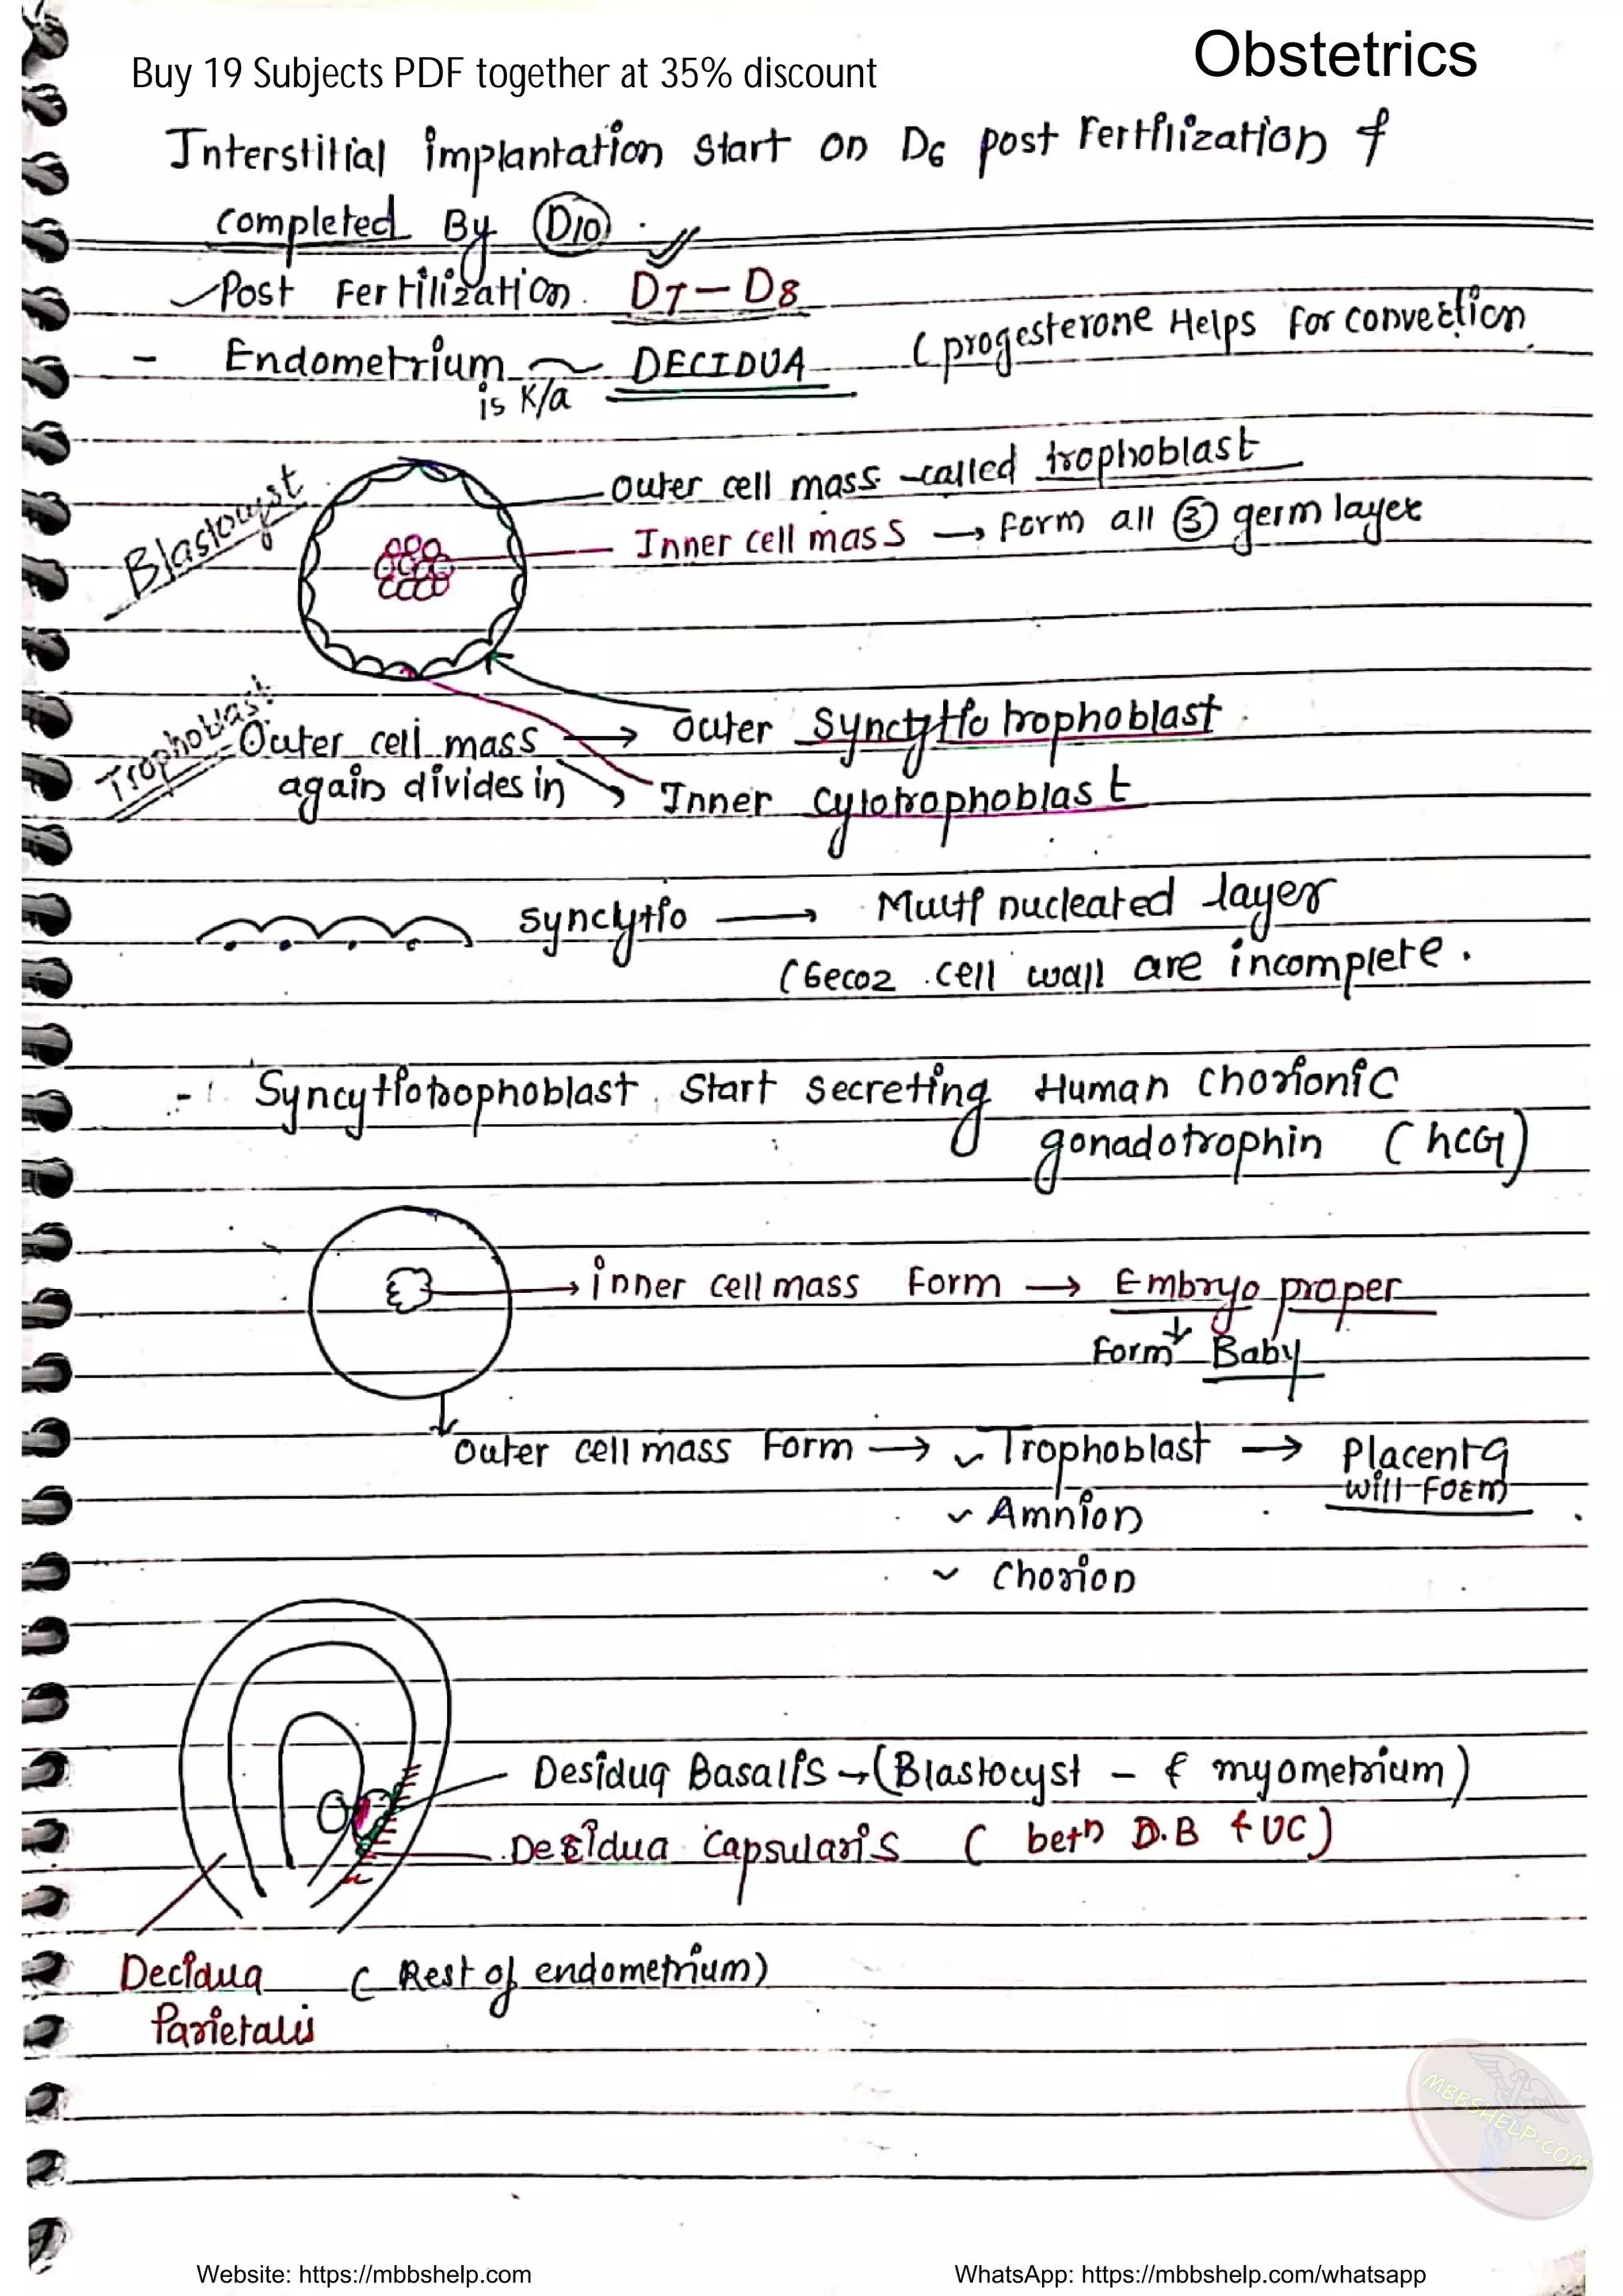 Buy 19 Subjects PDF together at 35% discount
Obstetrics
Interstitial implantation start on D6 post fertilization &
completed By D10
Post Fertilization D7 – D8
- Endometrium is K/a DECIDUA ( progesterone Helps for convection
Blastocyst
outer cell mass called trophoblast
Inner cell mass → Form all ③ germ layer
Trophoblast
Outer cell mass → outer Synctytio trophoblast
again divides in ↘ Inner cytotrophoblast
synclytio → Multi nucleated layer
(Becoz cell wall are incomplete.
- Syncytiotrophoblast start secreting Human chorionic
gonadotrophin ( hCG )
→ inner cell mass Form → Embryo proper
↓
Form Baby
outer cell mass Form → ✓ Trophoblast → Placenta
will form
✓ Amnion
✓ Chorion
Desidua Basalis → (Blastocyst - & myometrium)
Desidua Capsularis ( betn D.B & UC )
Decidua ( Rest of endometrium)
Parietalis
MBBSHELP.COM
Website: https://mbbshelp.com
WhatsApp: https://mbbshelp.com/whatsapp